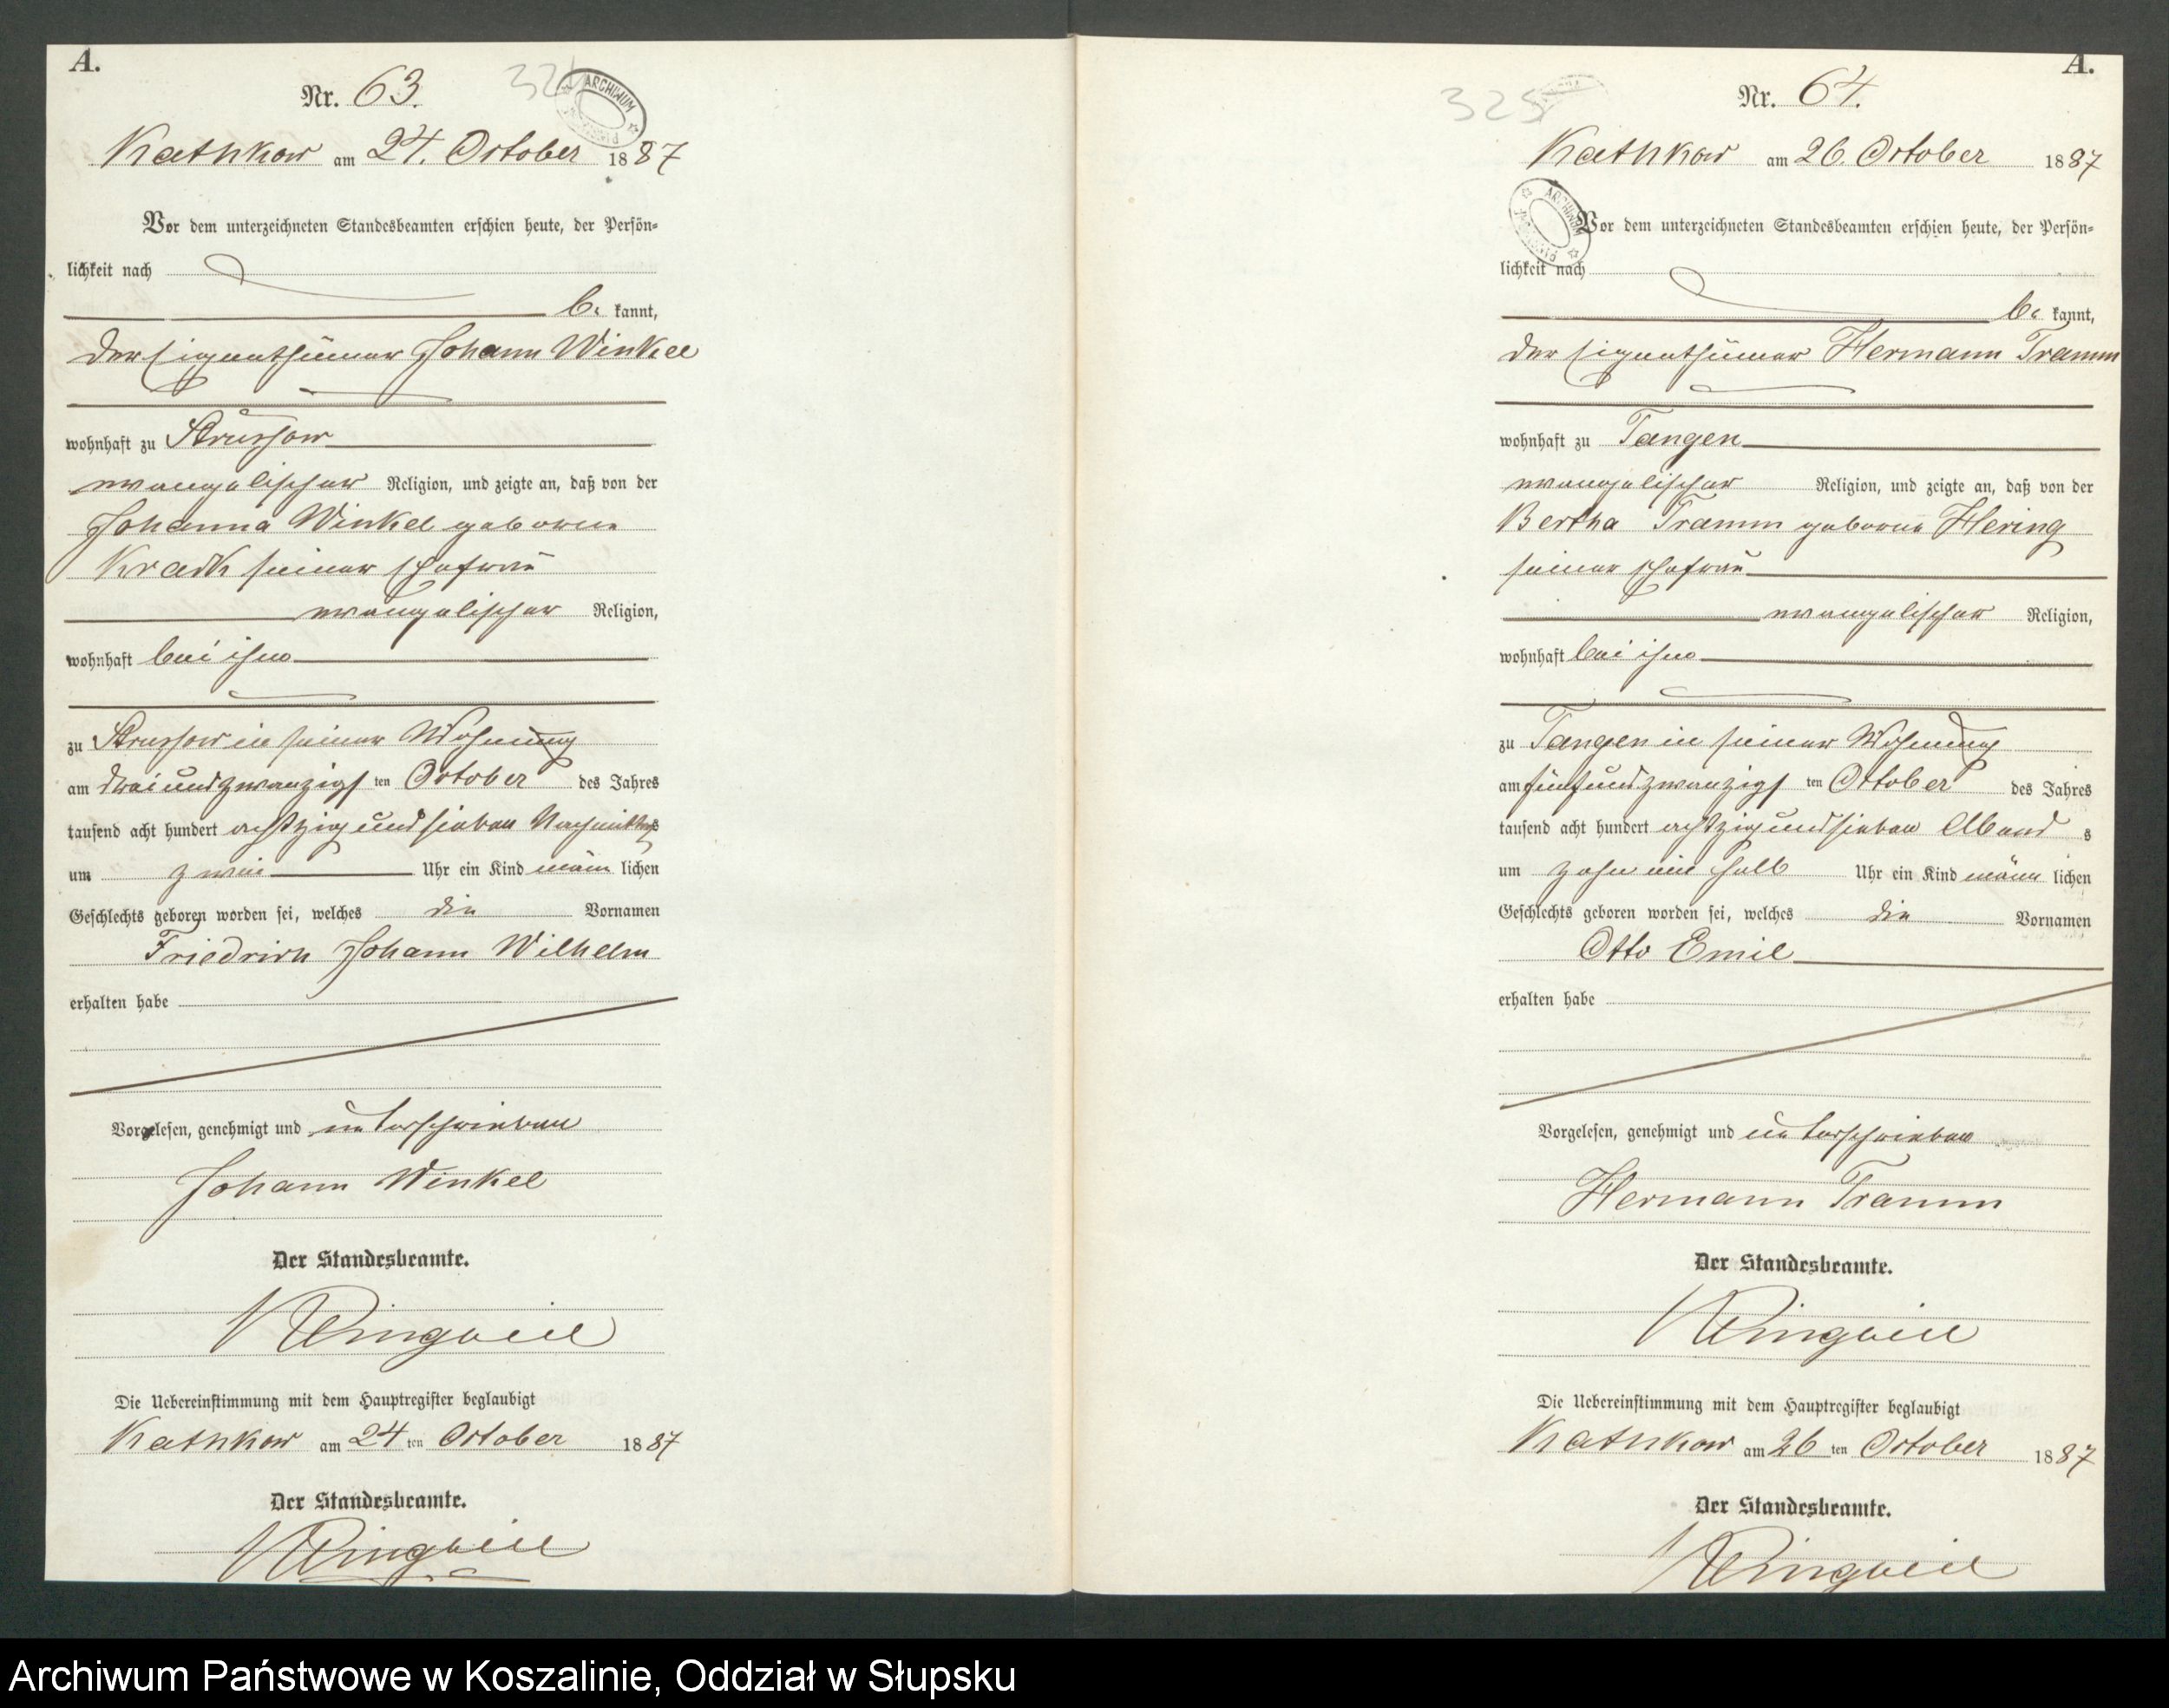 A.
Nr. 63.
324
ARCHIWUM
Kathkow am 24. October 1887
Vor dem unterzeichneten Standesbeamten erschien heute, der Persön-
lichkeit nach
be kannt,
der Eigenthümer Johann Winkel
wohnhaft zu Strussow
evangelischer Religion, und zeigte an, daß von der
Johanna Winkel geborene
seiner Ehefrau
evangelischer Religion,
wohnhaft bei ihm
zu Strussow in seiner Wohnung
am dreiundzwanzigs ten October des Jahres
tausend acht hundert achtzig und sieben Nachmittags
um zwei Uhr ein Kind männ lichen
Geschlechts geboren worden sei, welches die Vornamen
Friedrich Johann Wilhelm
erhalten habe
Vorgelesen, genehmigt und unterschrieben
Johann Winkel
Der Standesbeamte.
Die Uebereinstimmung mit dem Hauptregister beglaubigt
Kathkow am 24 ten October 1887
Der Standesbeamte.
A.
Nr. 64.
325
Kathkow am 26. October 1887
ARCHIWUM
Vor dem unterzeichneten Standesbeamten erschien heute, der Persön-
lichkeit nach
be kannt,
der Eigenthümer Hermann Tramm
wohnhaft zu Tangen
evangelischer Religion, und zeigte an, daß von der
Bertha Tramm geborene Hering
seiner Ehefrau
evangelischer Religion,
wohnhaft bei ihm
zu Tangen in seiner Wohnung
am fünfundzwanzigs ten October des Jahres
tausend acht hundert achtzig und sieben Abend s
um zehn ein halb Uhr ein Kind männ lichen
Geschlechts geboren worden sei, welches die Vornamen
Otto Emil
erhalten habe
Vorgelesen, genehmigt und unterschrieben
Hermann Tramm
Der Standesbeamte.
Die Uebereinstimmung mit dem Hauptregister beglaubigt
Kathkow am 26 ten October 1887
Der Standesbeamte.
Archiwum Państwowe w Koszalinie, Oddział w Słupsku